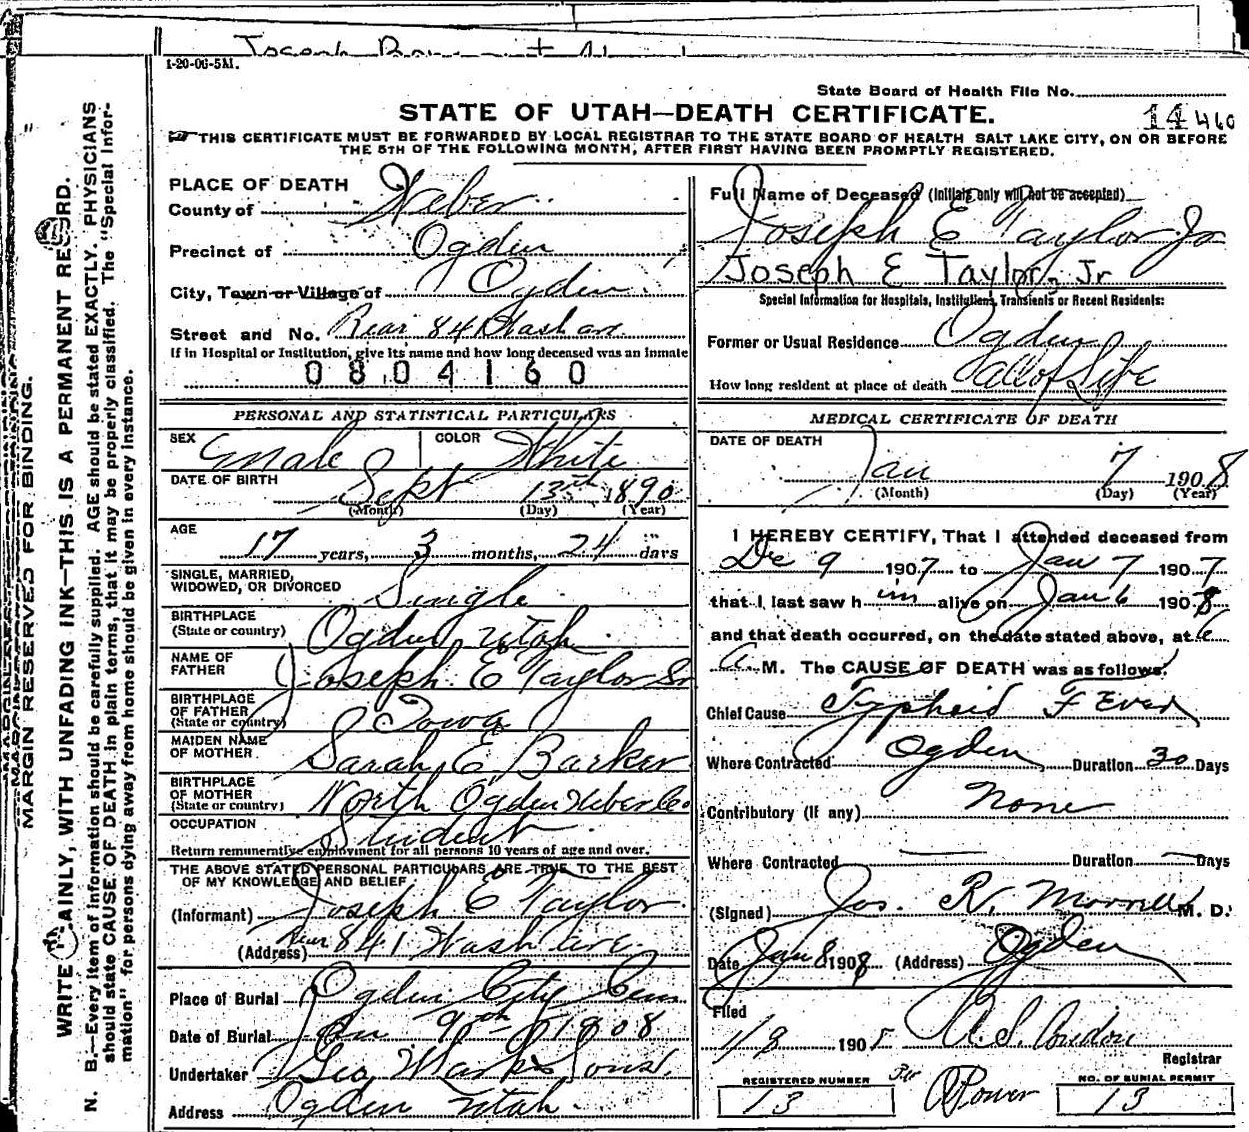 1-20-06-5M.
State Board of Health File No.
14 460
STATE OF UTAH—DEATH CERTIFICATE.
THIS CERTIFICATE MUST BE FORWARDED BY LOCAL REGISTRAR TO THE STATE BOARD OF HEALTH SALT LAKE CITY, ON OR BEFORE
THE 5TH OF THE FOLLOWING MONTH, AFTER FIRST HAVING BEEN PROMPTLY REGISTERED.
MARGIN RESERVED FOR BINDING.
WRITE PLAINLY, WITH UNFADING INK—THIS IS A PERMANENT RECORD.
N. B.—Every item of information should be carefully supplied. AGE should be stated EXACTLY. PHYSICIANS
should state CAUSE OF DEATH in plain terms, that it may be properly classified. The "Special Infor-
mation" for persons dying away from home should be given in every instance.
PLACE OF DEATH
County of Weber
Precinct of Ogden
City, Town or Village of Ogden
Street and No. Rear 841 Wash ave
If in Hospital or Institution, give its name and how long deceased was an inmate
0804160
PERSONAL AND STATISTICAL PARTICULARS
SEX Male COLOR White
DATE OF BIRTH Sept 13th 1890
(Month) (Day) (Year)
AGE 17 years, 3 months, 24 days
SINGLE, MARRIED,
WIDOWED, OR DIVORCED Single
BIRTHPLACE
(State or country) Ogden, Utah
NAME OF
FATHER Joseph E Taylor Sr
BIRTHPLACE
OF FATHER
(State or country) Iowa
MAIDEN NAME
OF MOTHER Sarah E Barker
BIRTHPLACE
OF MOTHER
(State or country) North Ogden Weber Co.
OCCUPATION Student
Return remunerative employment for all persons 10 years of age and over.
THE ABOVE STATED PERSONAL PARTICULARS ARE TRUE TO THE BEST
OF MY KNOWLEDGE AND BELIEF
(Informant) Joseph E Taylor
(Address) Rear 841 Wash ave
Place of Burial Ogden City Cem
Date of Burial Jan 9th 1908
Undertaker Geo W Sons.
Address Ogden Utah
Full Name of Deceased (Initials only will not be accepted)
Joseph E Taylor Jr
Joseph E Taylor, Jr
Special Information for Hospitals, Institutions, Transients or Recent Residents:
Former or Usual Residence Ogden
How long resident at place of death all of Life
MEDICAL CERTIFICATE OF DEATH
DATE OF DEATH
Jan 7 1908
(Month) (Day) (Year)
I HEREBY CERTIFY, That I attended deceased from
Dec 9 1907 to Jan 7 1907
that I last saw him alive on Jan 6 1908
and that death occurred, on the date stated above, at 6
A.M. The CAUSE OF DEATH was as follows:
Chief Cause Typhoid Fever
Where Contracted Ogden Duration 30 Days
Contributory (If any) None
Where Contracted Duration Days
(Signed) Jos. R. Morrell M. D.
Date Jan 8 1908 (Address) Ogden
Filed
1/8 1908
Registrar
REGISTERED NUMBER
13
Power
NO. OF BURIAL PERMIT
13